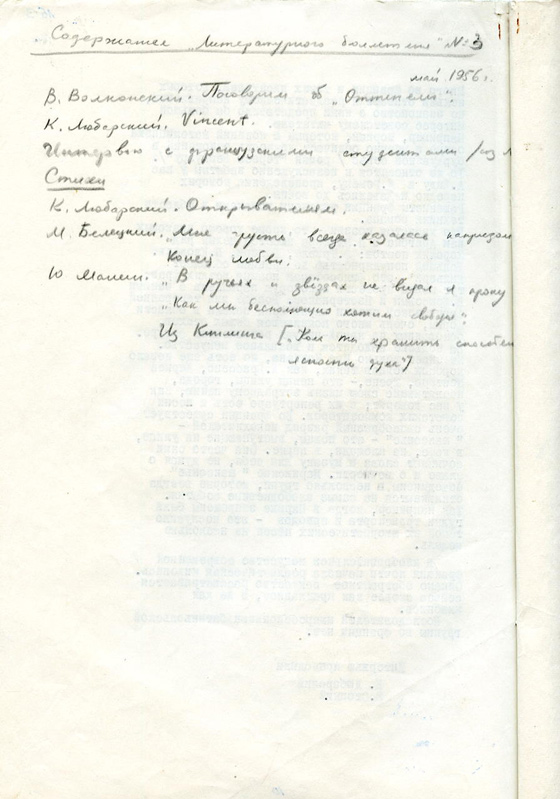 Содержание „Литературного бюллетеня" № 3
май 1956 г.
В. Волконский. Поговорим об „Оттепели".
К. Любарский. Vincent.
Интервью с французскими студентами /из
Стихи
К. Любарский. Открывателям.
М. Белецкий. „Мне грусть всегда казалась
Конец любви.
Ю Манин. „В ручьях и звёздах не видал я проку
„Как мы беспомощно хотим свободы".
Из Киплинга [„Коль ты хранить способен
ясность духа"]